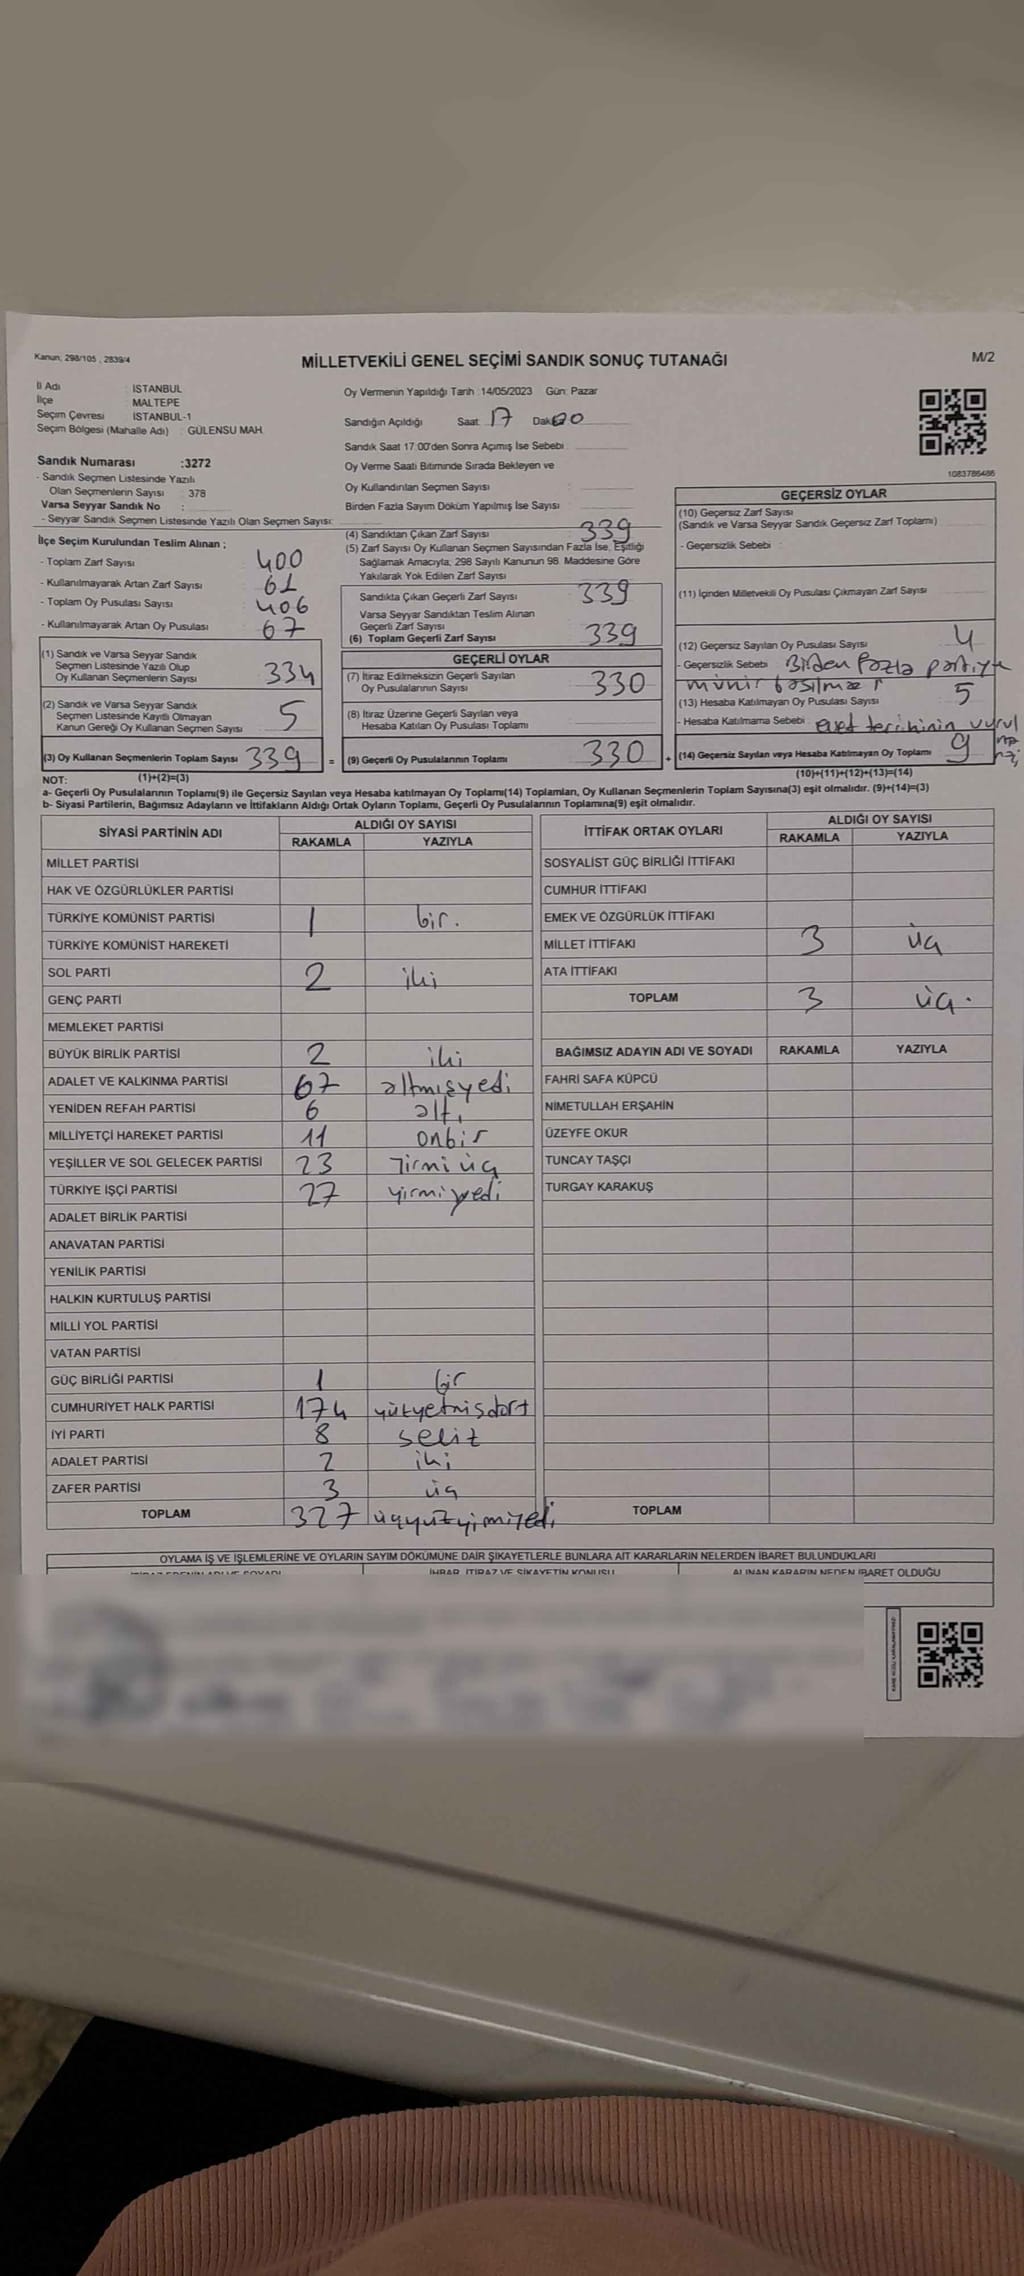 Kanun: 298/105 , 2839/4
MİLLETVEKİLİ GENEL SEÇİMİ SANDIK SONUÇ TUTANAĞI
M/2
İl Adı : İSTANBUL
İlçe : MALTEPE
Seçim Çevresi : İSTANBUL-1
Seçim Bölgesi (Mahalle Adı) : GÜLENSU MAH.
Sandık Numarası :3272
- Sandık Seçmen Listesinde Yazılı
Olan Seçmenlerin Sayısı : 378
Varsa Seyyar Sandık No :
- Seyyar Sandık Seçmen Listesinde Yazılı Olan Seçmen Sayısı:
Oy Vermenin Yapıldığı Tarih :14/05/2023 Gün: Pazar
Sandığın Açıldığı Saat: 17 Dak: 00
Sandık Saat 17:00'den Sonra Açımış İse Sebebi :
Oy Verme Saati Bitiminde Sırada Bekleyen ve
Oy Kullandırılan Seçmen Sayısı :
Birden Fazla Sayım Döküm Yapılmış İse Sayısı :
1083786486
İlçe Seçim Kurulundan Teslim Alınan ;
- Toplam Zarf Sayısı : 400
- Kullanılmayarak Artan Zarf Sayısı : 61
- Toplam Oy Pusulası Sayısı : 406
- Kullanılmayarak Artan Oy Pusulası : 67
(1) Sandık ve Varsa Seyyar Sandık
Seçmen Listesinde Yazılı Olup
Oy Kullanan Seçmenlerin Sayısı : 334
(2) Sandık ve Varsa Seyyar Sandık
Seçmen Listesinde Kayıtlı Olmayan
Kanun Gereği Oy Kullanan Seçmen Sayısı : 5
(3) Oy Kullanan Seçmenlerin Toplam Sayısı : 339
(4) Sandıktan Çıkan Zarf Sayısı : 339
(5) Zarf Sayısı Oy Kullanan Seçmen Sayısından Fazla İse, Eşitliği
Sağlamak Amacıyla, 298 Sayılı Kanunun 98. Maddesine Göre
Yakılarak Yok Edilen Zarf Sayısı :
Sandıkta Çıkan Geçerli Zarf Sayısı : 339
Varsa Seyyar Sandıktan Teslim Alınan
Geçerli Zarf Sayısı :
(6) Toplam Geçerli Zarf Sayısı : 339
GEÇERLİ OYLAR
(7) İtiraz Edilmeksizin Geçerli Sayılan
Oy Pusulalarının Sayısı : 330
(8) İtiraz Üzerine Geçerli Sayılan veya
Hesaba Katılan Oy Pusulası Toplamı :
= (9) Geçerli Oy Pusulalarının Toplamı : 330
GEÇERSİZ OYLAR
(10) Geçersiz Zarf Sayısı
(Sandık ve Varsa Seyyar Sandık Geçersiz Zarf Toplamı) :
- Geçersizlik Sebebi :
(11) İçinden Milletvekili Oy Pusulası Çıkmayan Zarf Sayısı :
(12) Geçersiz Sayılan Oy Pusulası Sayısı : 4
- Geçersizlik Sebebi : Birden fazla partiye
mühür
(13) Hesaba Katılmayan Oy Pusulası Sayısı : 5
- Hesaba Katılmama Sebebi : evet tercihinin vurul
+ (14) Geçersiz Sayılan veya Hesaba Katılmayan Oy Toplamı : 9
NOT: (1)+(2)=(3)
(10)+(11)+(12)+(13)=(14)
a- Geçerli Oy Pusulalarının Toplamı(9) ile Geçersiz Sayılan veya Hesaba katılmayan Oy Toplamı(14) Toplamları, Oy Kullanan Seçmenlerin Toplam Sayısına(3) eşit olmalıdır. (9)+(14)=(3)
b- Siyasi Partilerin, Bağımsız Adayların ve İttifakların Aldığı Ortak Oyların Toplamı, Geçerli Oy Pusulalarının Toplamına(9) eşit olmalıdır.
SİYASİ PARTİNİN ADI
ALDIĞI OY SAYISI
RAKAMLA YAZIYLA
MİLLET PARTİSİ
HAK VE ÖZGÜRLÜKLER PARTİSİ
TÜRKİYE KOMÜNİST PARTİSİ 1 bir.
TÜRKİYE KOMÜNİST HAREKETİ
SOL PARTİ 2 iki
GENÇ PARTİ
MEMLEKET PARTİSİ
BÜYÜK BİRLİK PARTİSİ 2 iki
ADALET VE KALKINMA PARTİSİ 67 altmışyedi
YENİDEN REFAH PARTİSİ 6 altı
MİLLİYETÇİ HAREKET PARTİSİ 11 onbir
YEŞİLLER VE SOL GELECEK PARTİSİ 23 yirmi üç
TÜRKİYE İŞÇİ PARTİSİ 27 yirmi yedi
ADALET BİRLİK PARTİSİ
ANAVATAN PARTİSİ
YENİLİK PARTİSİ
HALKIN KURTULUŞ PARTİSİ
MİLLİ YOL PARTİSİ
VATAN PARTİSİ
GÜÇ BİRLİĞİ PARTİSİ 1 bir
CUMHURİYET HALK PARTİSİ 174 yüzyetmişdört
İYİ PARTİ 8 sekiz
ADALET PARTİSİ 2 iki
ZAFER PARTİSİ 3 üç
TOPLAM 327 üçyüzyirmiyedi
İTTİFAK ORTAK OYLARI
ALDIĞI OY SAYISI
RAKAMLA YAZIYLA
SOSYALİST GÜÇ BİRLİĞİ İTTİFAKI
CUMHUR İTTİFAKI
EMEK VE ÖZGÜRLÜK İTTİFAKI
MİLLET İTTİFAKI 3 üç
ATA İTTİFAKI
TOPLAM 3 üç.
BAĞIMSIZ ADAYIN ADI VE SOYADI RAKAMLA YAZIYLA
FAHRİ SAFA KÜPCÜ
NİMETULLAH ERŞAHİN
ÜZEYFE OKUR
TUNCAY TAŞÇI
TURGAY KARAKUŞ
TOPLAM
OYLAMA İŞ VE İŞLEMLERİNE VE OYLARIN SAYIM DÖKÜMÜNE DAİR ŞİKAYETLERLE BUNLARA AİT KARARLARIN NELERDEN İBARET BULUNDUKLARI
İTİRAZ EDENİN ADI VE SOYADI İHBAR, İTİRAZ VE ŞİKAYETİN KONUSU ALINAN KARARIN NEDEN İBARET OLDUĞU